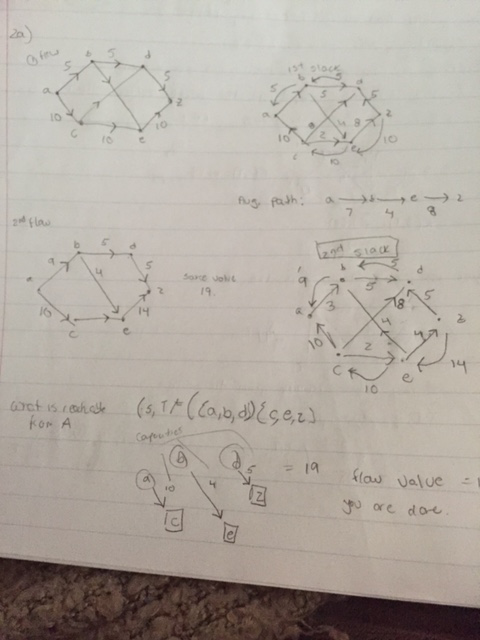 2a)
① flow
b 5 d
5 5
a z
10 10
c 10 e
1st slack
b 5 d
5 5 5
a z
10 8 4 8 10
c 2 e
10
Aug. path: a → b → e → z
7 4 8
2nd flow
b 5 d
9 4 5
a z
10 14
c e
same value
19.
2nd slack
b 5 d
9 5
a 3 8 5 z
10 4 4
c 2 e 14
10
What is reachable
from A
(S, T) = ({a,b,d}{c,e,z}
capacities
a b d 5 = 19
10 4 z
c e
flow value =
you are done.